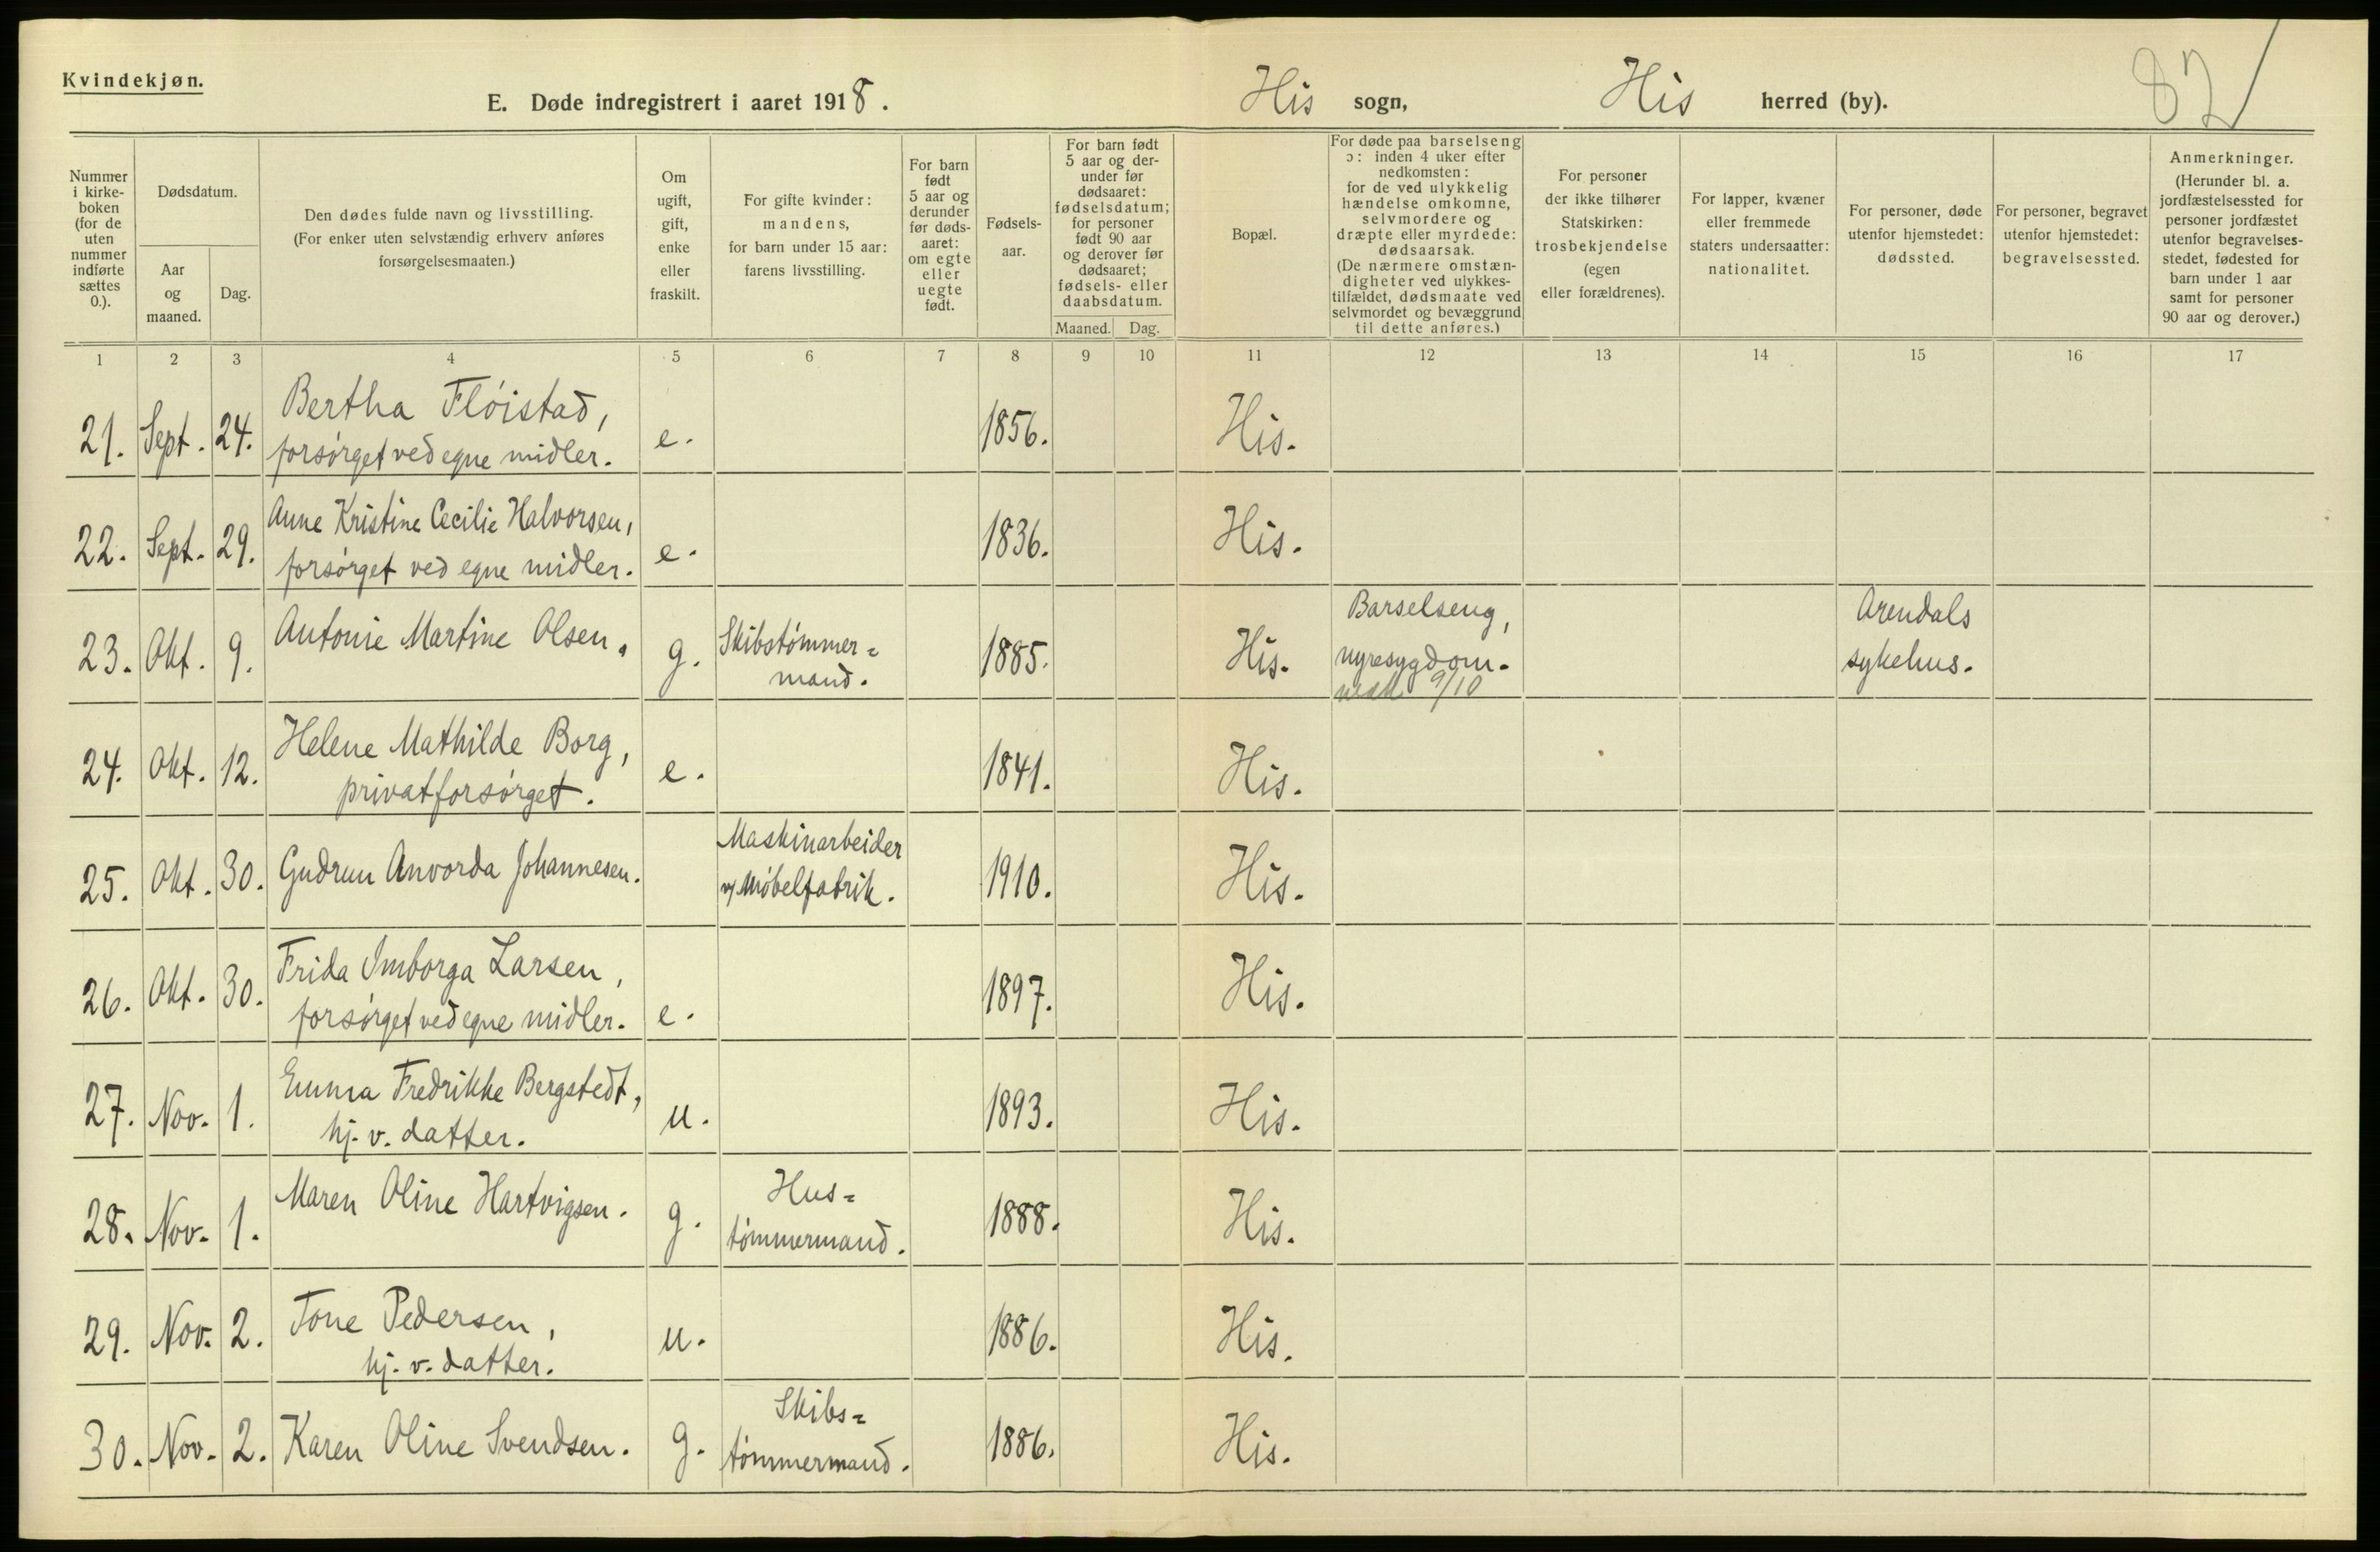 Kvindekjøn.
E. Døde indregistrert i aaret 1918.
His sogn, His herred (by).
82
Nummer i kirke-boken (for de uten nummer indførte sættes 0.).
Dødsdatum.
Aar og maaned.
Dag.
Den dødes fulde navn og livsstilling.
(For enker uten selvstændig erhverv anføres forsørgelsesmaaten.)
Om ugift, gift, enke eller fraskilt.
For gifte kvinder: mandens, for barn under 15 aar: farens livsstilling.
For barn født 5 aar og derunder før døds-aaret: om egte eller uegte født.
Fødsels-aar.
For barn født 5 aar og der-under før dødsaaret: fødselsdatum; for personer født 90 aar og derover før dødsaaret; fødsels- eller daabsdatum.
Maaned.
Dag.
Bopæl.
For døde paa barselseng ɔ: inden 4 uker efter nedkomsten: for de ved ulykkelig hændelse omkomne, selvmordere og dræpte eller myrdede: dødsaarsak.
(De nærmere omstæn-digheter ved ulykkes-tilfældet, dødsmaate ved selvmordet og bevæggrund til dette anføres.)
For personer der ikke tilhører Statskirken: trosbekjendelse (egen eller forældrenes).
For lapper, kvæner eller fremmede staters undersaatter: nationalitet.
For personer, døde utenfor hjemstedet: dødssted.
For personer, begravet utenfor hjemstedet: begravelsessted.
Anmerkninger.
(Herunder bl. a. jordfæstelsessted for personer jordfæstet utenfor begravelses-stedet, fødested for barn under 1 aar samt for personer 90 aar og derover.)
1 2 3 4 5 6 7 8 9 10 11 12 13 14 15 16 17
21. Sept. 24. Bertha Fløistad, e. 1856. His.
forsørget ved egne midler.
22. Sept. 29. Anne Kristine Cecilie Halvorsen, e. 1836. His.
forsørget ved egne midler.
23. Okt. 9. Antonie Martine Olsen. g. Skibstømmer= 1885. His. Barselseng, Arendals
mand. nyresygdom. sykehus.
9/10
24. Okt. 12. Helene Mathilde Borg, e. 1841. His.
privatforsørget.
25. Okt. 30. Gudrun Anvorda Johannesen. Maskinarbeider 1910. His.
v/ Møbelfabrik.
26. Okt. 30. Frida Imborga Larsen, e. 1897. His.
forsørget ved egne midler.
27. Nov. 1. Emma Fredrikke Bergstedt, u. 1893. His.
hj. v. datter.
28. Nov. 1. Maren Oline Hartvigsen. g. Hus= 1888. His.
tømmermand.
29. Nov. 2. Tone Pedersen, u. 1886. His.
hj. v. datter.
30. Nov. 2. Karen Oline Svendsen. g. Skibs= 1886. His.
tømmermand.